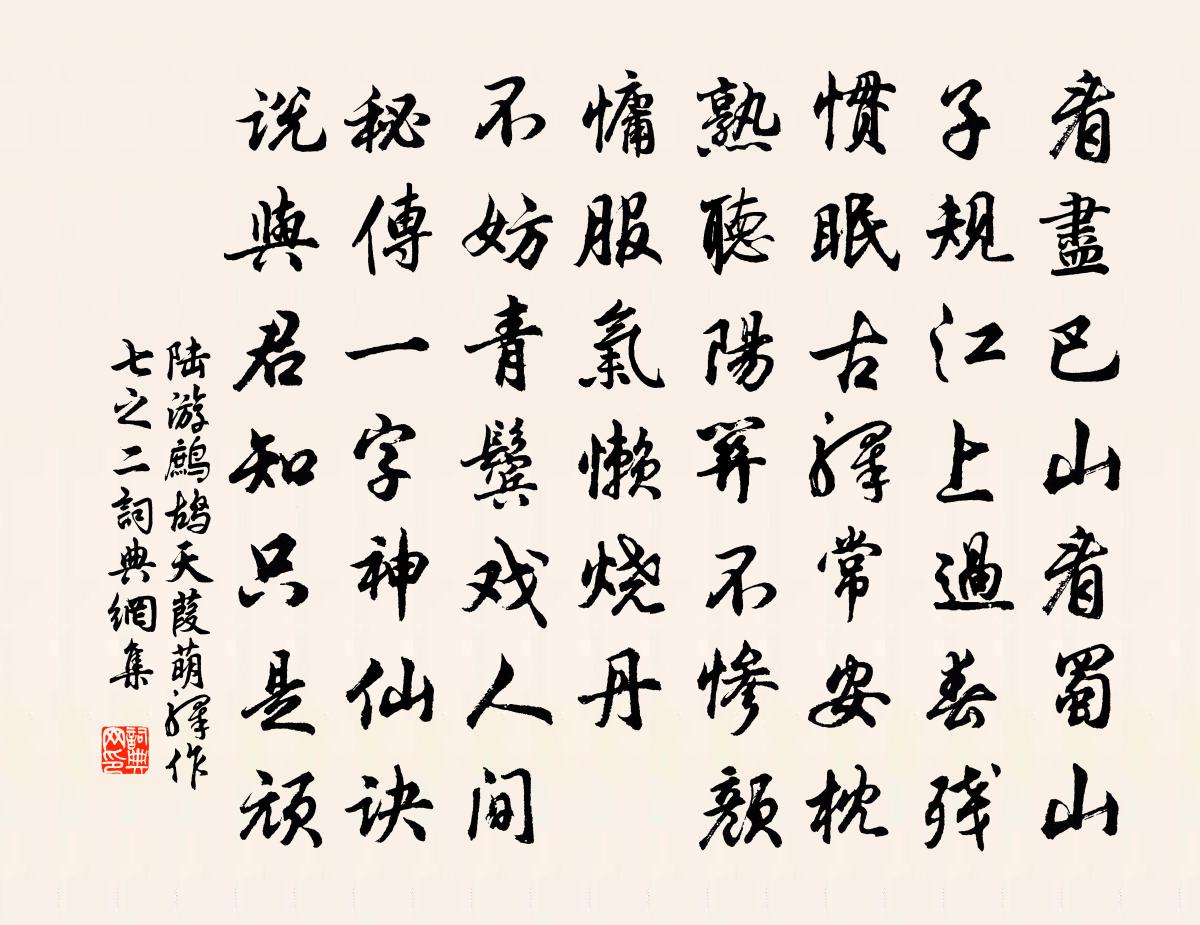 看盡巴山看蜀山
子規江上過春残
慣眠古驛常安枕
熟聽陽關不慘顏
慵服氣懶烧丹
不妨青鬢戏人间
秘傳一字神仙诀
说與君知只是顽
陆游鹧鸪天葭萌驛作
七之二詞典網集
詞典网印